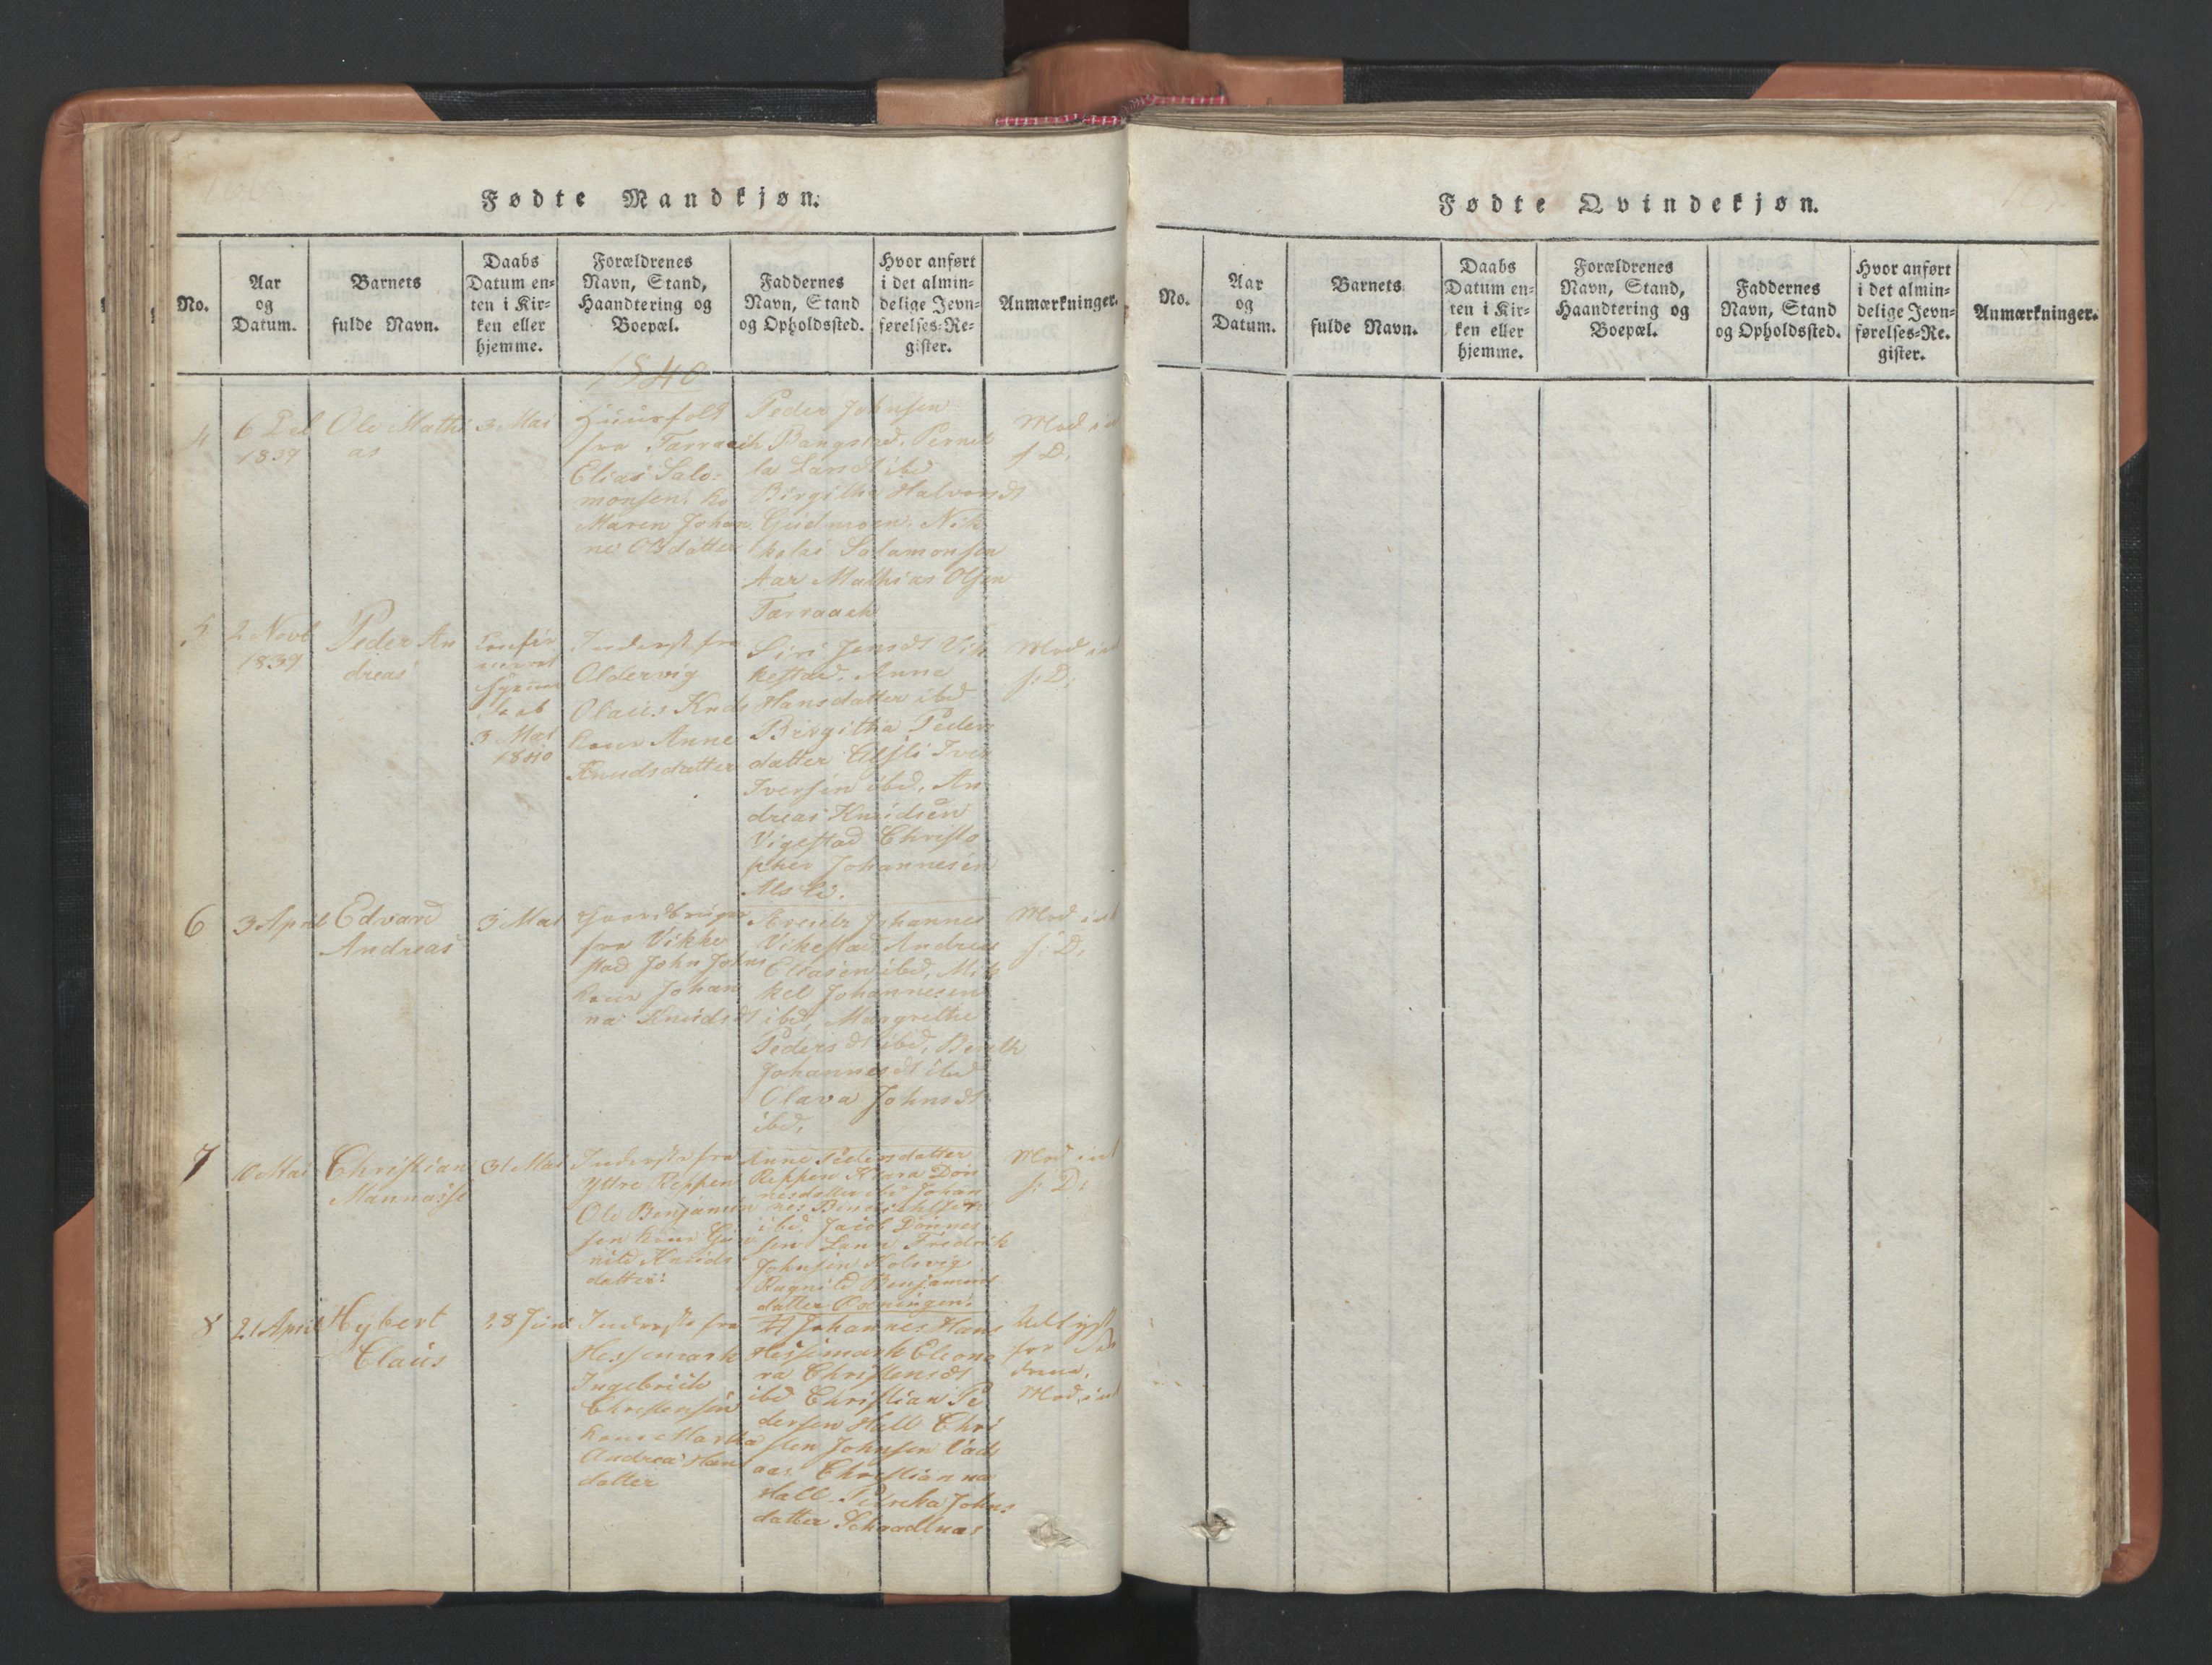 Fødte Mandkjøn.
No.
Aar
og
Datum.
Barnets
fulde Navn.
Daabs
Datum en-
ten i Kir-
ken eller
hjemme.
Forældrenes
Navn, Stand,
Haandtering og
Boepæl.
Faddernes
Navn, Stand
og Opholdssted.
Hvor anført
i det almin-
delige Jevn-
førelses-Re-
gister.
Anmærkninger.
1840
4
6 Deb
1839
Ole Mathi
as
3 Mai
Huusfolk
fra Tarraack
Elias Salo-
monsen. ko
Maren Johan
ne Olsdatter
Peder Johnsen
Bangstad. Pernel
la Larsdt ibd
Birgitha Halvorsdt
Gudmoen. Nik
holai Salamonsen
Aar Mathias Olsen
Tarraack
Mod. ind
f. D.
5
2 Novb
1839
Peder An
dreas
3 Mai
1840
Inderst fra
Oldervig
Olaus Knds
konr Anne
Knudsdatter
Siri Jensdt Vik
kestad. Anne
Hansdatter ibd
Birgitha Peders
datter Iver
Iversen ibd. An
dreas Knudsen
Vigestad Christo
pher Johannesen
Mod ind
f: D:
6
3 April
Edvard
Andreas
3 Mai
Gaardbruger
fra Vikke
stad John Johns
konr Johan
na Knudsdt
Johannes
Vikestad Andreas
Eliasen ibd, Mik
kel Johannesen
ibd, Margrethe
Pedersdt ibd, Bereth
Johannesdt ibd
Olava Johnsdt
ibd.
Mod ind
f: D.
7
10 Mai
Christian
Mannasse
31 Mai
Inderste fra
Yttre Reppen
Ole Benjamin
sen konr Gun
nild Knuds
datter:
Anne Pedersdatter
Reppen Klara Døn
nesdatter ibd Johan
nes
ibd. Jacob Dønnes
sen Fredrik
Johnsen Holsvig
Ragnild Benjamins
datter
Mod ind
f: D:
8
21 April
Hybert
Claus
28 Juni
Inderste fra
Hessemark
Ingebricth
Christensen
kone Martha
Andrea Hans
datter
Johannes Hans
Hessemark Eleono
ra Christensdt
ibd Christian Pe
dersen Hall Chri
sten Johnsen Vads
aas Christianna
Hall. Petrikka Johns
datter
for
Mod. ind
Fødte Qvindekjøn.
No.
Aar
og
Datum.
Barnets
fulde Navn.
Daabs
Datum en-
ten i Kir-
ken eller
hjemme.
Forældrenes
Navn, Stand,
Haandtering og
Boepæl.
Faddernes
Navn, Stand
og Opholdssted.
Hvor anført
i det almin-
delige Jevn-
førelses-Re-
gister.
Anmærkninger.